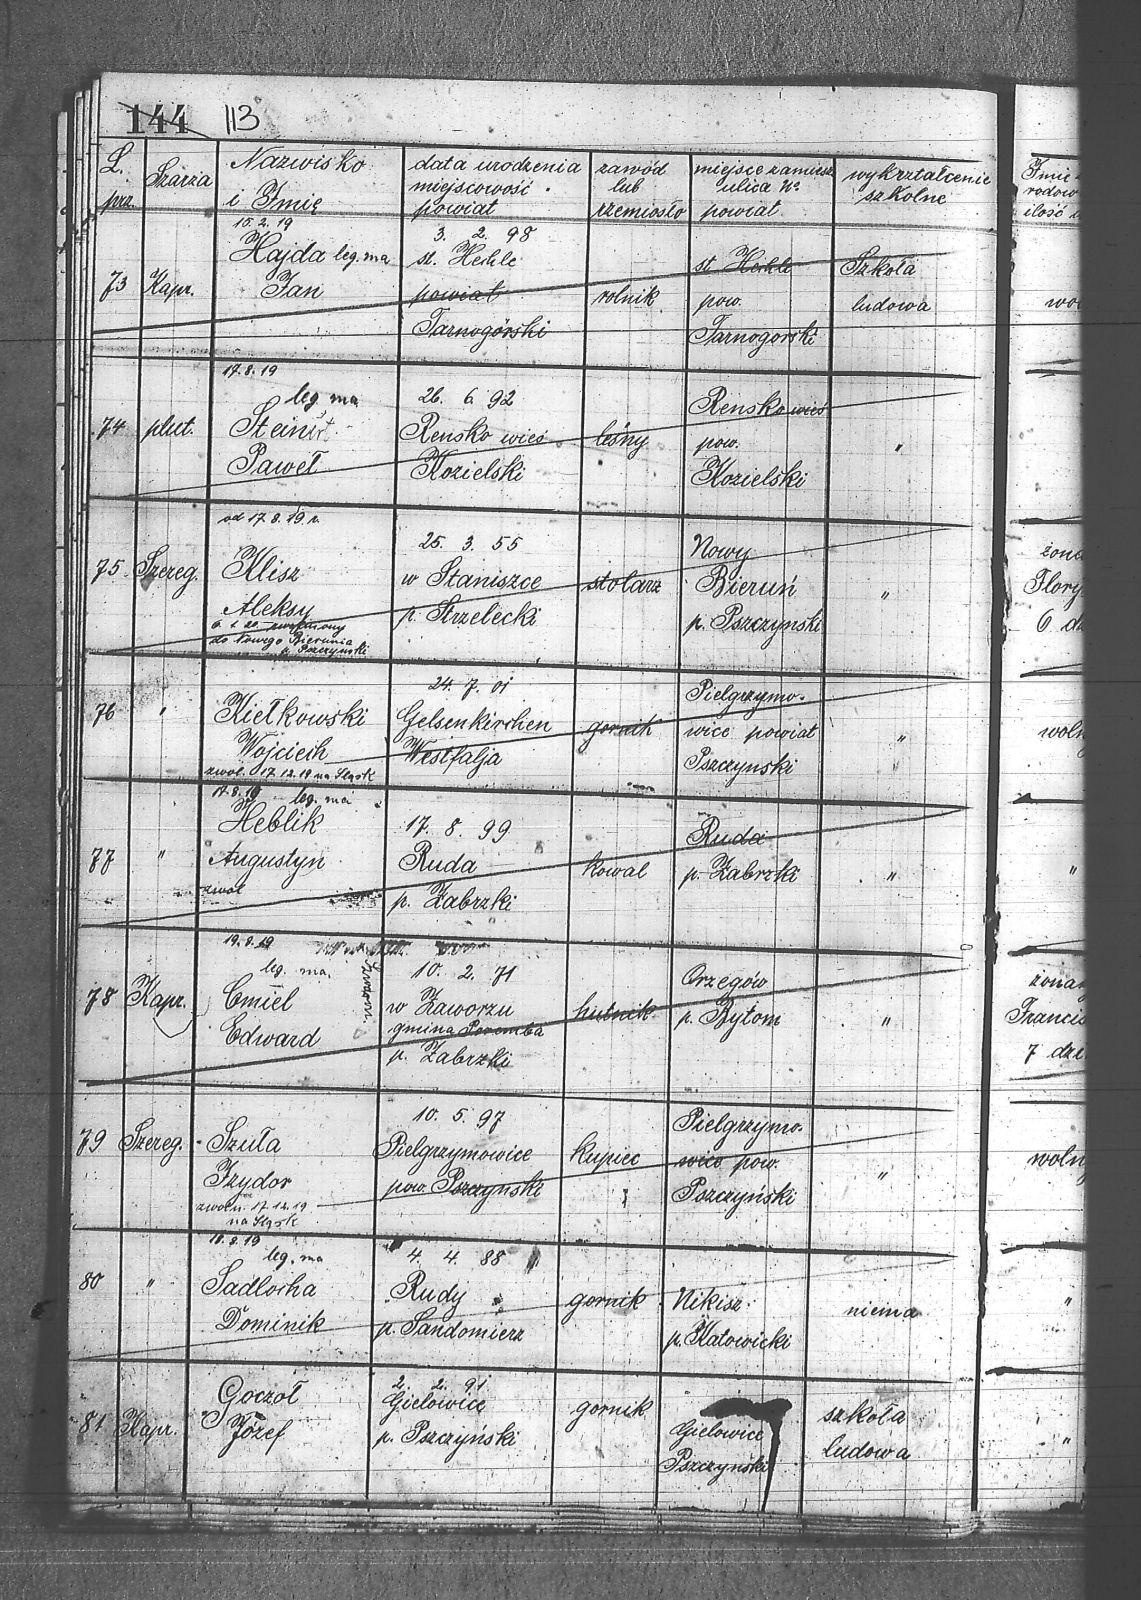 144 113
L. prz. Szarża Nazwisko i Imię data urodzenia miejscowość powiat zawód lub rzemiosło miejsce zamiesz. ulica No powiat wykrztałcenie szkolne
Imię
rodow
ilość
15.2.19
73 Kapr. Hajda leg. ma
Jan
3. 2. 98
st. Hechle
powiat
Tarnogórski
rolnik
st Hechle
pow.
Tarnogorski
Szkoła
ludowa
17.8.19
leg. ma
74 plut. Steinert
Paweł
26. 6. 92
Rensko wieś
Kozielski
leśny
Rensko wieś
pow.
Kozielski
"
od 17.8.19 r.
75 Szereg. Klisz
Aleksy
6.1.20
do Nowego Bierunia
p. Pszczyński
25. 3. 55
w Staniszce
p. Strzelecki
stolarz
Nowy
Bieruń
p. Pszczynski
"
żona
Flory
6 dz
76 " Kiełkowski
Wojciech
zwol. 17.12.19 na Śląsk
24. 7. 01
Gelsenkirchen
Westfalja
gornik
Pielgrzymo-
wice powiat
Pszczynski
"
"
woln
17.8.19 leg. ma
77 " Heblik
Augustyn
zwol
17. 8. 99
Ruda
p. Zabrzki
kowal
Ruda
p. Zabrzki
"
"
19.8.19
leg. ma.
78 Kapr. Cmiel
Edward
10. 2. 71
w Zaworzu
gmina Poremba
p. Zabrzki
hutnik
Orzegów
p. Bytom
"
żona
Francis
7 dzi
79 Szereg. Szuła
Izydor
zwoln. 17.12.19
na Śląsk
10. 5. 97
Pielgrzymowice
pow. Pszczyński
kupiec
Pielgrzymo-
wice pow.
Pszczyński
"
woln
18.8.19
leg. ma
80 " Sadlocha
Dominik
4. 4. 88
Rudy
p. Sandomierz
gornik
Nikisz
p. Katowicki
niema
"
81 Kapr. Goczoł
Józef
2. 2. 91
Gielowice
p. Pszczyński
gornik
Gielowice
Pszczyński
szkoła
ludowa
"